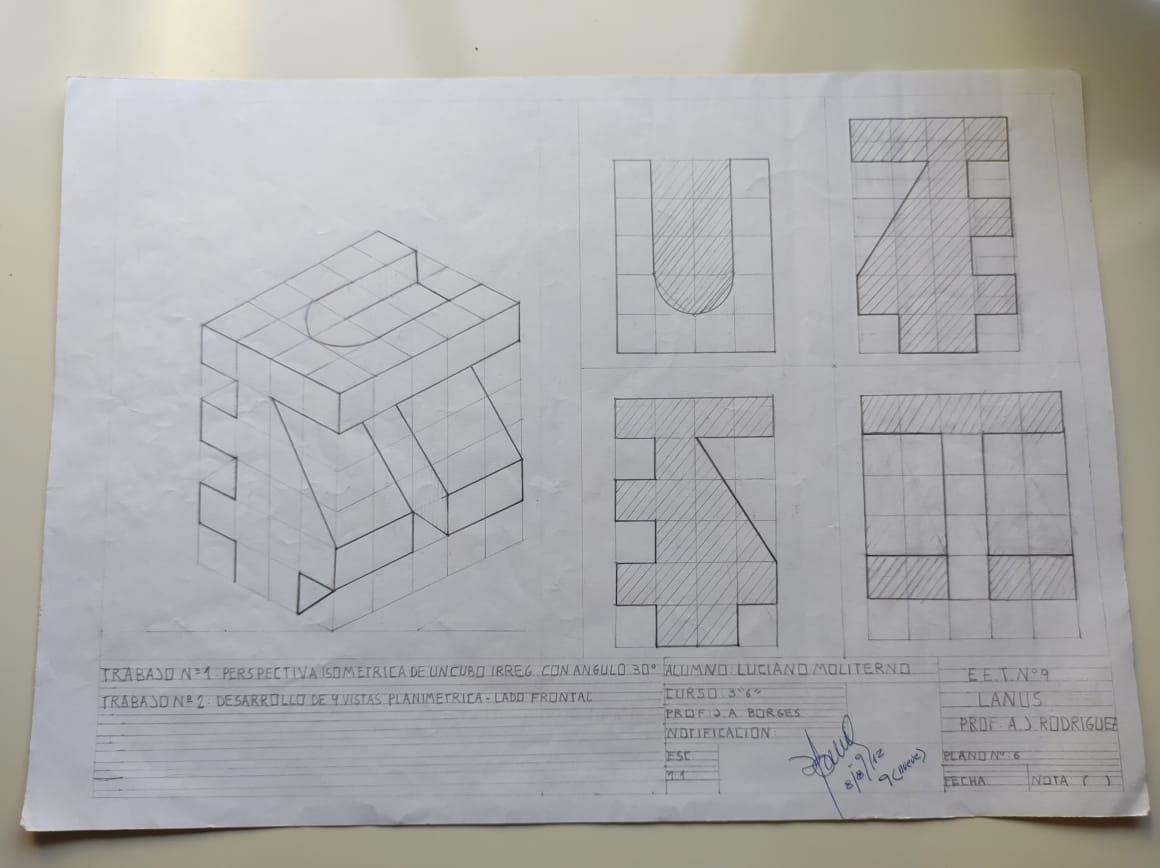 TRABAJO Nº1: PERSPECTIVA ISOMETRICA DE UN CUBO IRREG. CON ANGULO 30°
TRABAJO Nº2: DESARROLLO DE 4 VISTAS PLANIMETRICA - LADO FRONTAL
ALUMNO: LUCIANO MOLITERNO
CURSO 3º6º
PROF: J. A. BORGES
NOTIFICACION:
ESC:
1:1
8/8/12
9 (nueve)
E.E.T. Nº9
LANUS
PROF: A.J. RODRIGUEZ
PLANO Nº: 6
FECHA
NOTA ( )